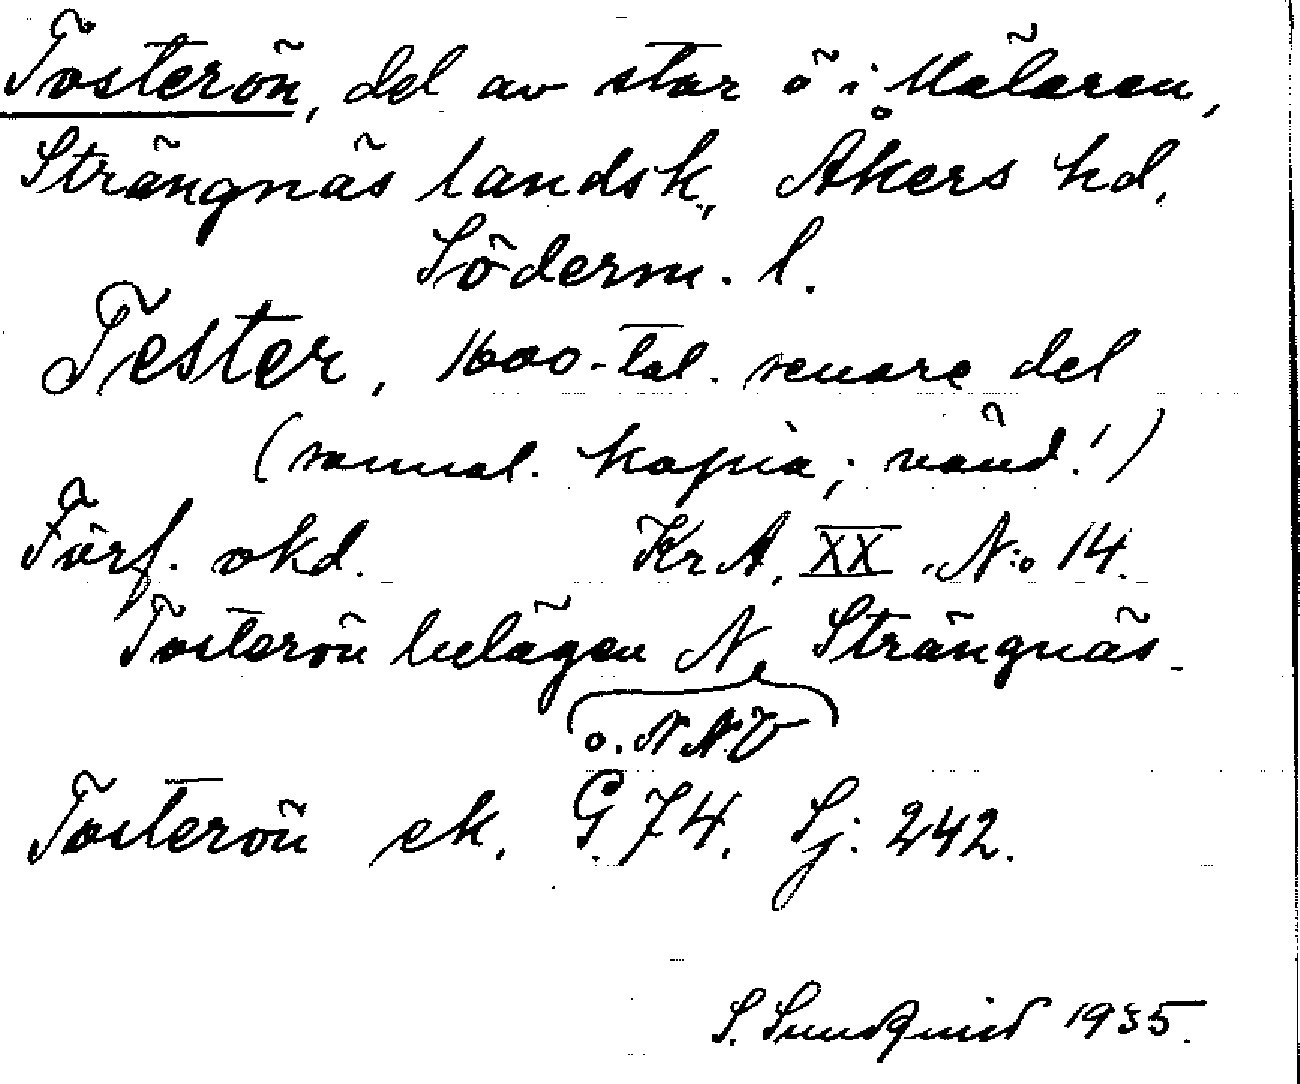 Tosterön, del av stor ö i Mälaren,
Strängnäs landsk., Åkers hd,
Söderm. l.
Tester, 1600-tal. senare del
(samml. kopia; vänd!)
Förf. okd. KrA, XX. N:o 14.
Tosterön belägen N Strängnäs.
o. NNV
Tosterön ek. G 74. Sj: 242.
S. Sundquist 1935.